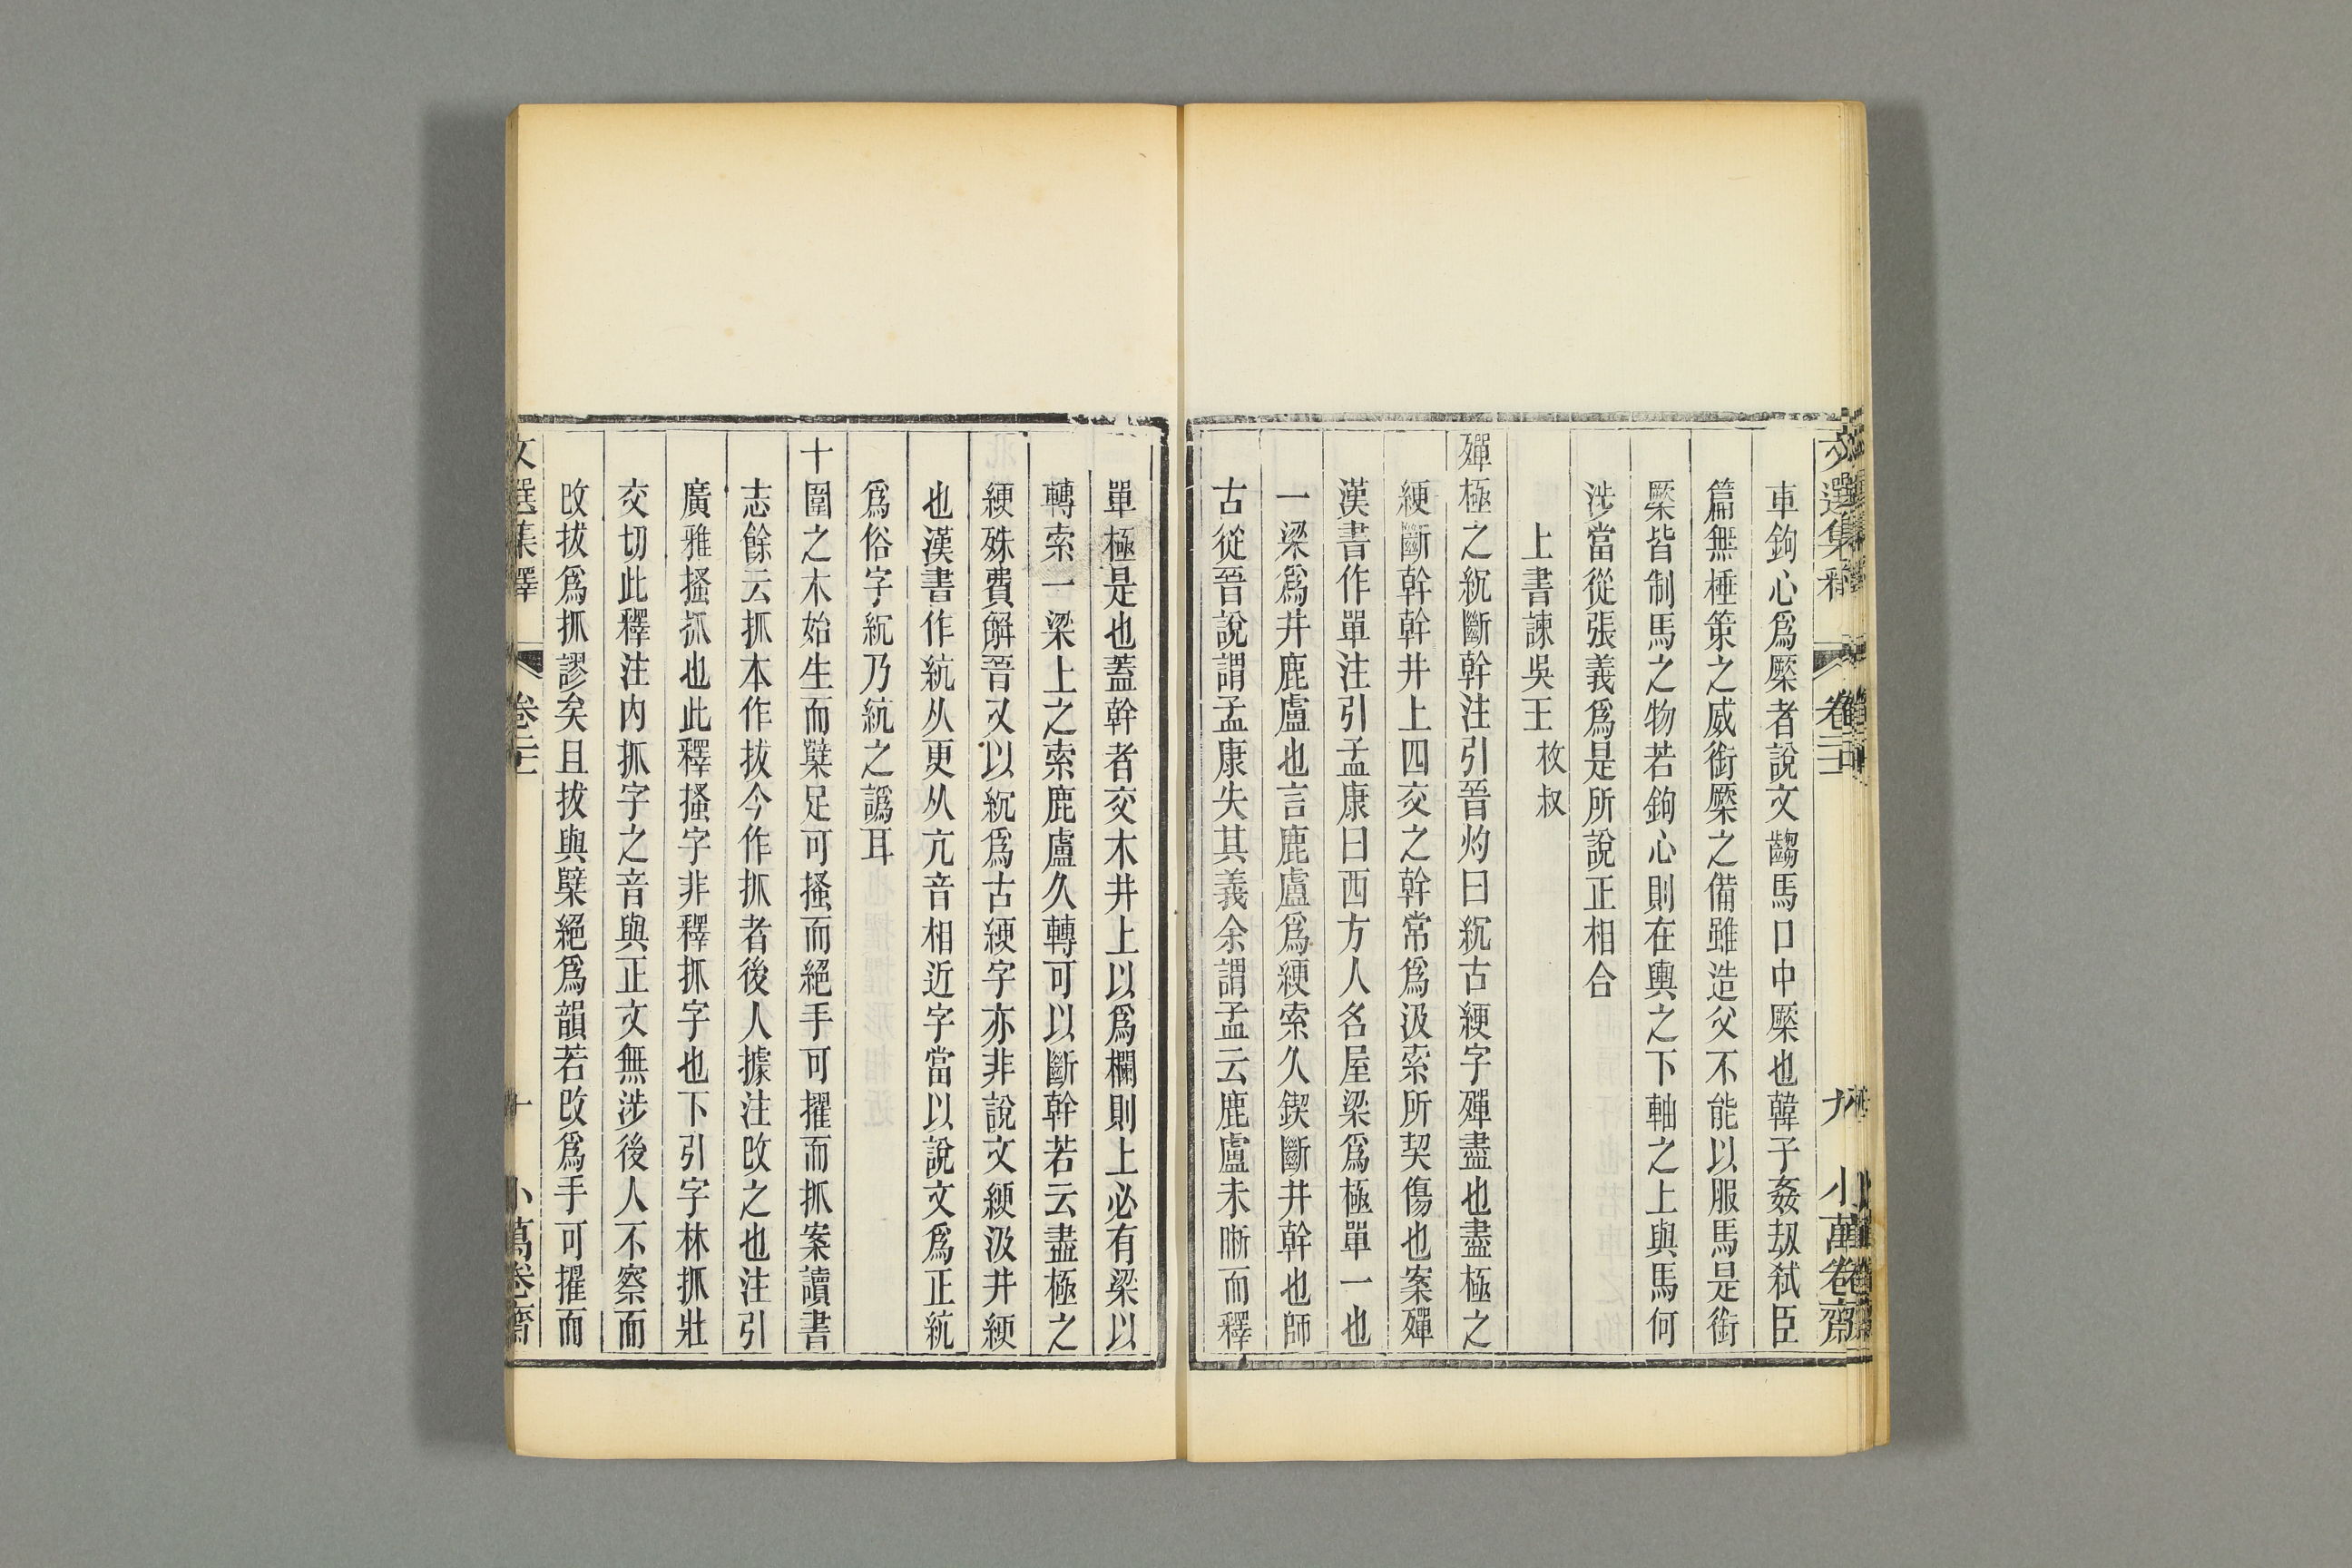 文選集釋 卷二十二 九 小萬卷齋
車鉤心爲橜者說文齺馬口中橜也韓子姦劫弑臣
篇無棰策之威銜橜之備雖造父不能以服馬是銜
橜皆制馬之物若鉤心則在輿之下軸之上與馬何
涉當從張義爲是所說正相合
上書諫吳王 枚叔
殫極之綂斷幹注引晉灼曰綂古綆字殫盡也盡極之
綆斷幹幹井上四交之幹常爲汲索所契傷也案殫
漢書作單注引孟康曰西方人名屋梁爲極單一也
一梁爲井鹿盧也言鹿盧爲綆索久鍥斷井幹也師
古從晉說謂孟康失其義余謂孟云鹿盧未晰而釋
單極是也蓋幹者交木井上以爲欄則上必有梁以
轉索一梁上之索鹿盧久轉可以斷幹若云盡極之
綆殊費解晉又以綂爲古綆字亦非說文綆汲井綆
也漢書作統从更从亢音相近字當以說文爲正統
爲俗字綂乃統之譌耳
十圍之木始生而櫱足可搔而絕手可擢而抓案讀書
志餘云抓本作拔今作抓者後人據注改之也注引
廣雅搔抓也此釋搔字非釋抓字也下引字林抓壯
交切此釋注內抓字之音與正文無涉後人不察而
改拔爲抓謬矣且拔與櫱絕爲韻若改爲手可擢而
文選集釋 卷二十二 十 小萬卷齋